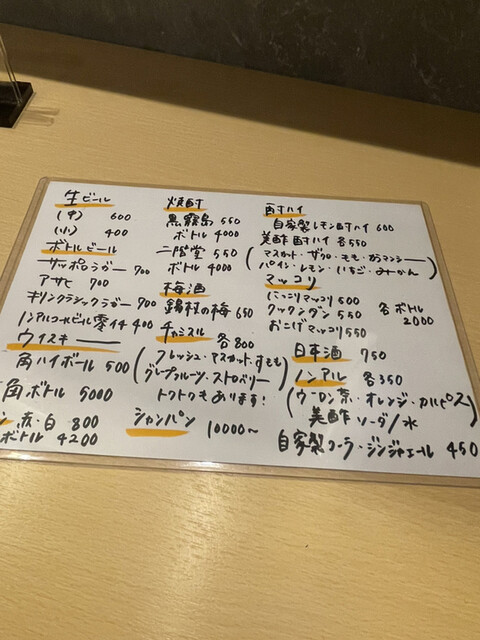 生ビール
(中) 600
(小) 400
ボトルビール
サッポロラガー 700
アサヒ 700
キリンクラシックラガー 700
ノンアルコールビール零イチ 400
ウイスキー
角ハイボール 500
角ボトル 5000
ン 赤・白 800
ボトル 4200
焼酎
黒霧島 550
ボトル 4000
二階堂 550
ボトル 4000
梅酒
鍋村の梅 650
チャミスル 各800
(フレッシュ・マスカット・すもも
グレープフルーツ・ストロベリー)
トクトクもあります!
シャンパン 10000〜
酎ハイ
自家製レモン酎ハイ 600
美酢酎ハイ 各550
(マスカット・ザクロ・もも・カラマンシー
パイン・レモン・いちご・みかん)
マッコリ
にっこりマッコリ 500
クックンダン 550
おこげマッコリ 550
各ボトル
2000
日本酒 750
ノンアル 各350
(ウーロン茶・オレンジ・カルピス)
美酢ソーダ/水
自家製コーラ・ジンジャエール 450